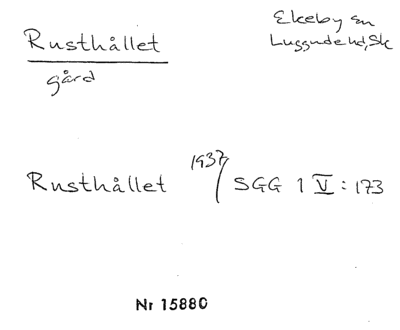 Rusthållet
gård
Ekeby sn
Luggude hd, Sk
Rusthållet 1937/ SGG 1 V : 173
Nr 15880